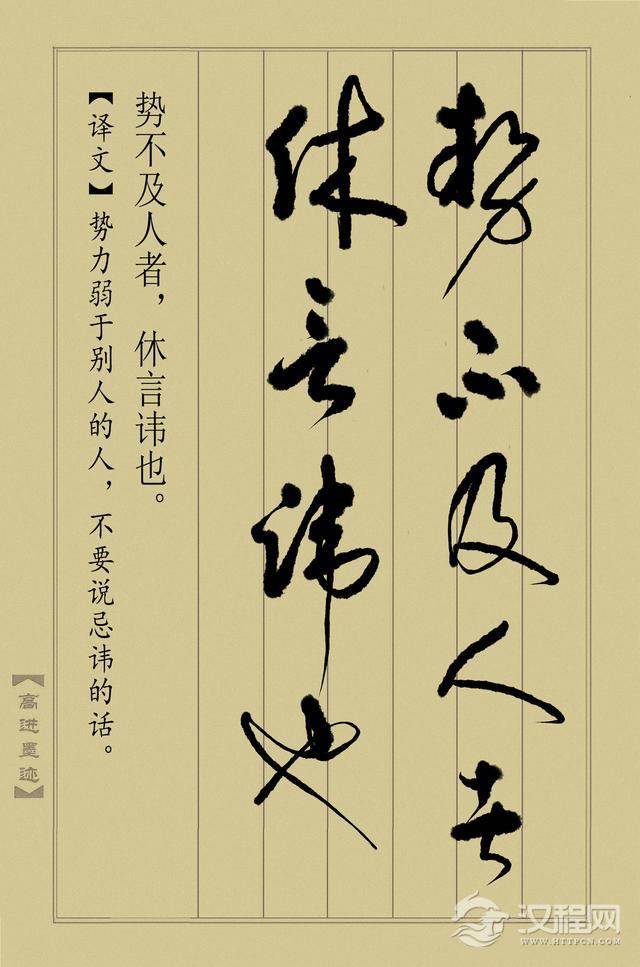 势不及人者
休言讳也
势不及人者，休言讳也。
【译文】势力弱于别人的人，不要说忌讳的话。
【高进墨迹】
汉程网
WWW.HTTPCN.COM